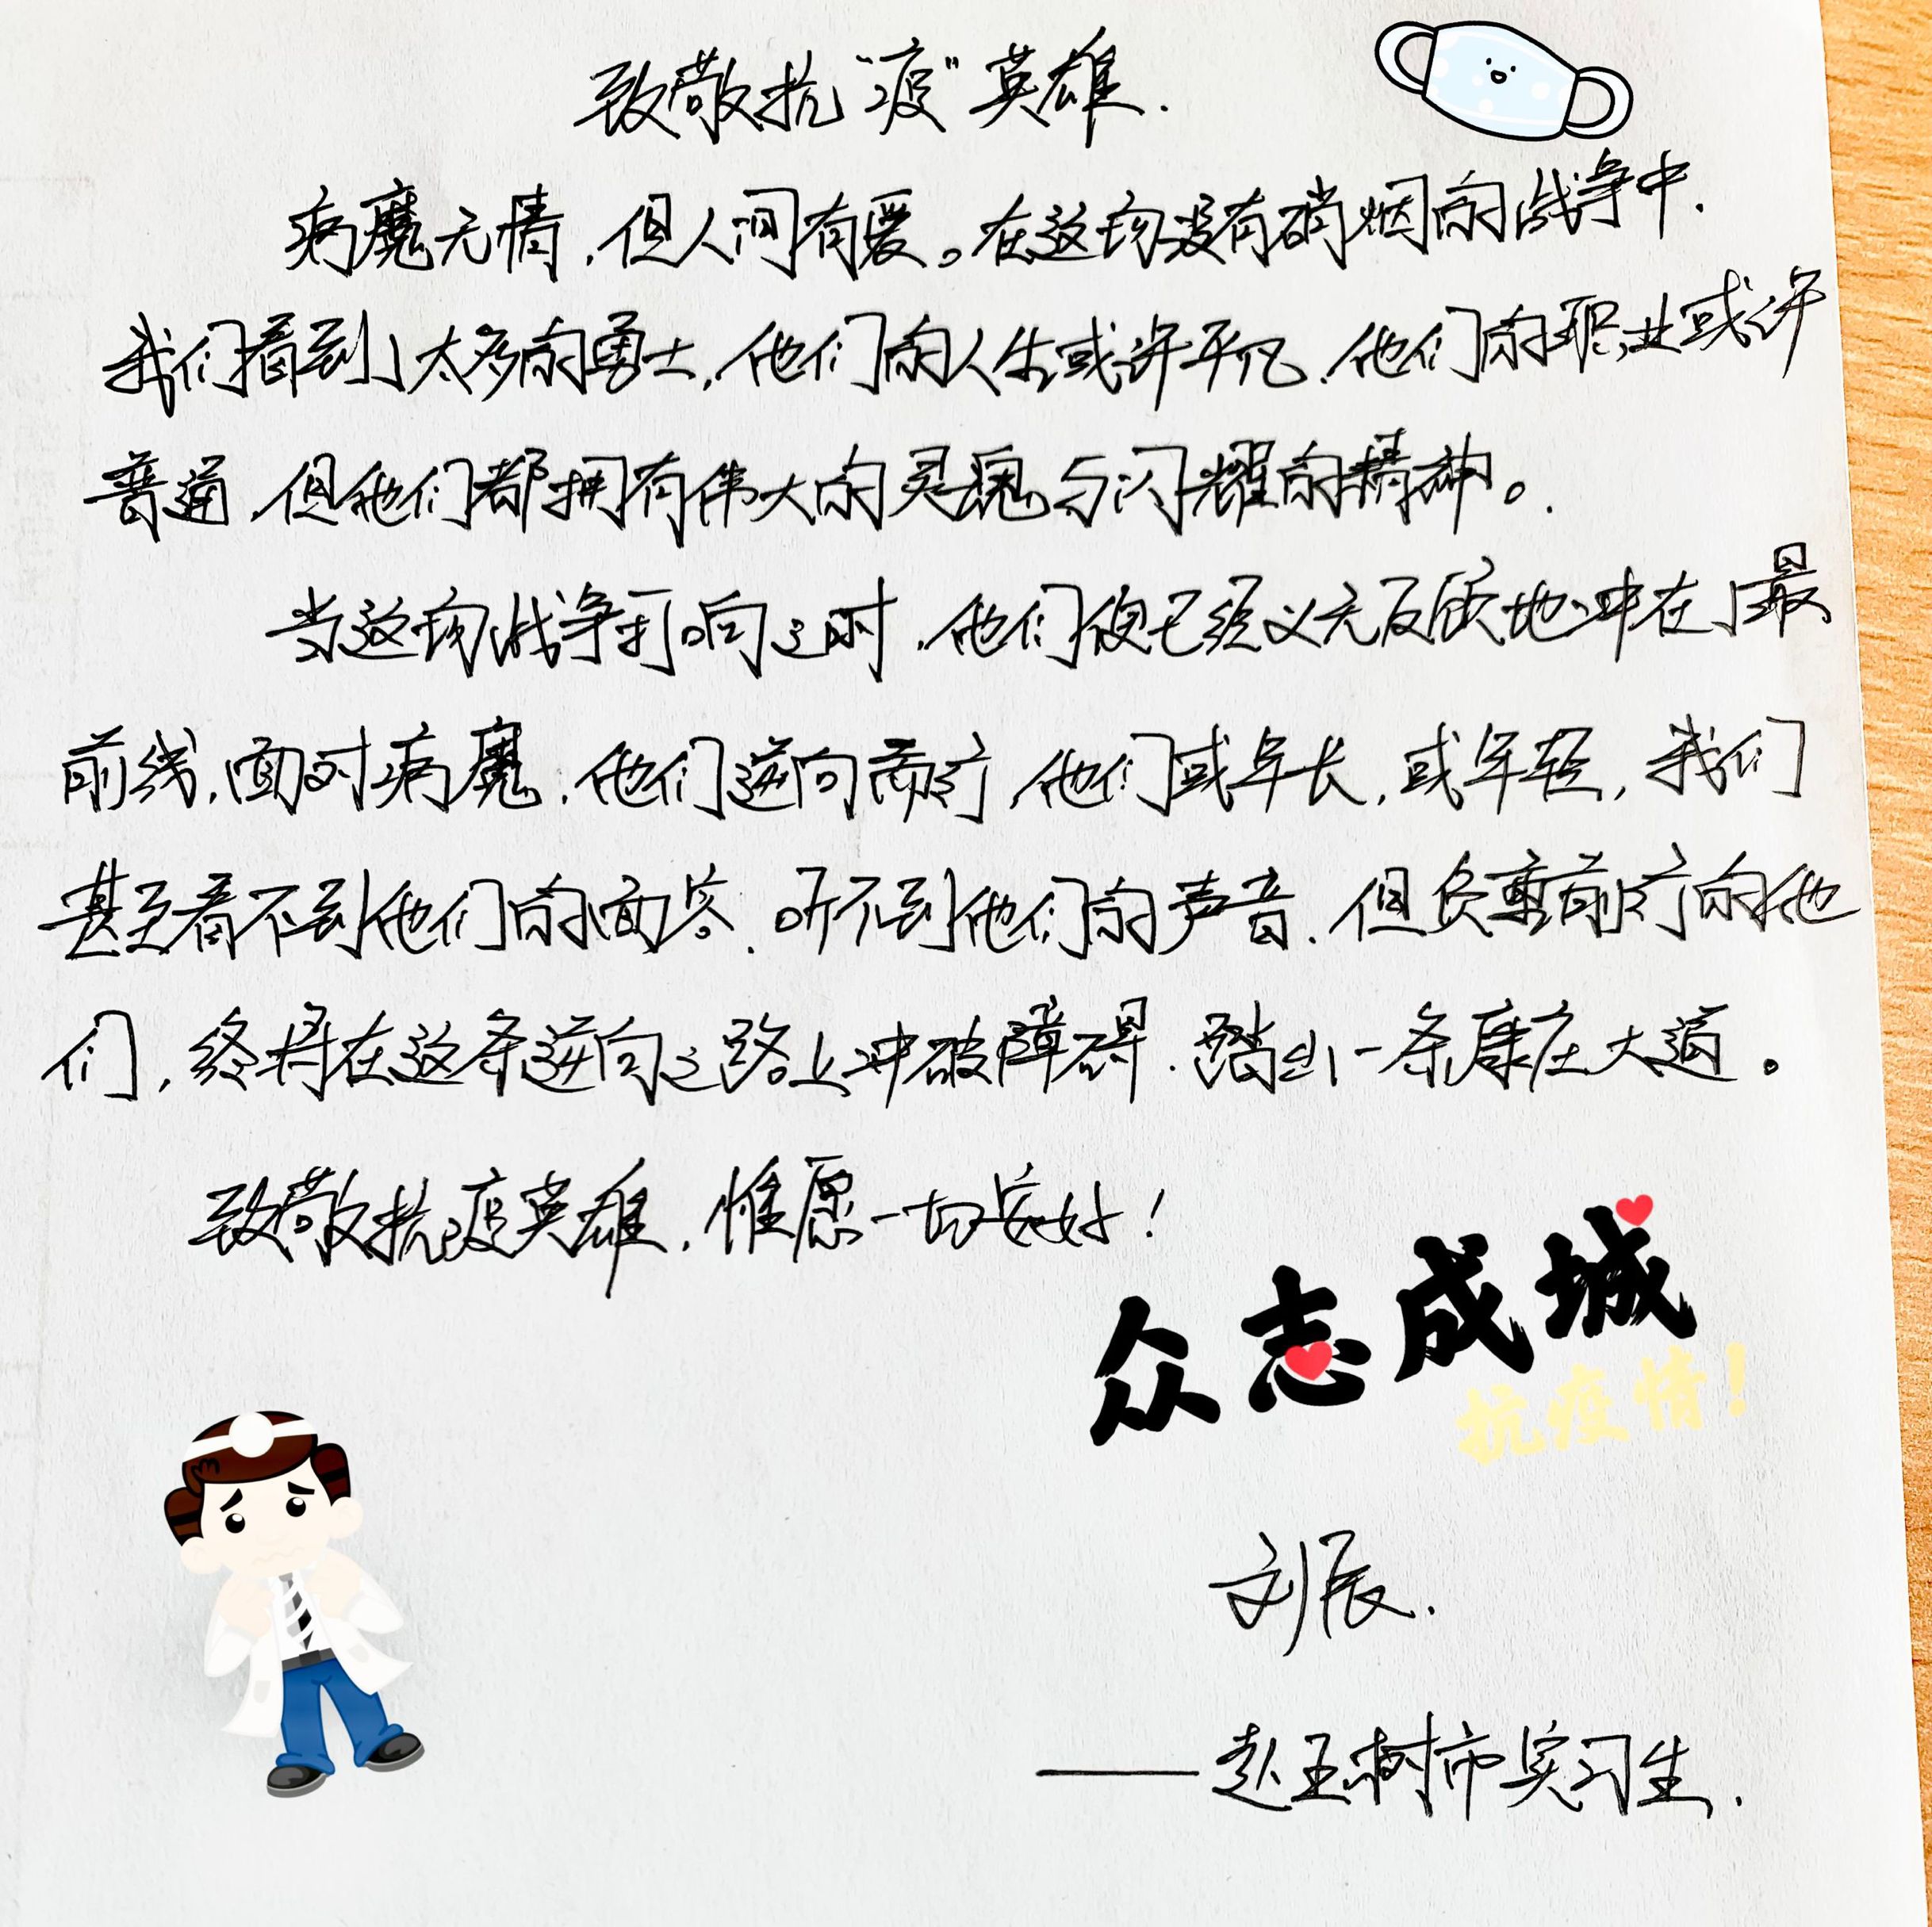 致敬抗“疫”英雄.
病魔无情,但人间有爱。在这场没有硝烟的战争中.
我们看到了太多的勇士,他们的人生或许平凡.他们的职业或许
普通,但他们都拥有伟大的灵魂与闪耀的精神。.
当这场战争打响之时,他们便已经义无反顾地冲在了最
前线,面对病魔.他们逆向而行,他们或年长,或年轻,我们
甚至看不到他们的面容.听不到他们的声音.但负重前行的他
们,终将在这条逆向之路上冲破障碍.踏出一条康庄大道。
致敬抗疫英雄.惟愿一切安好!
众志成城
抗疫情!
刘辰.
——赴玉树市实习生.